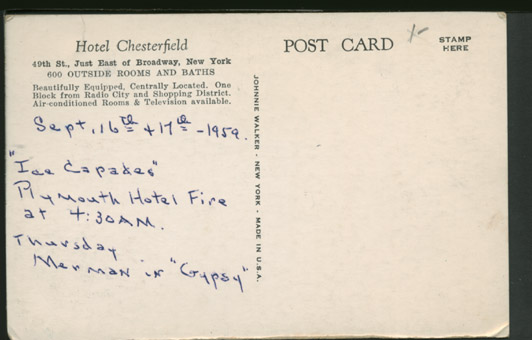 Hotel Chesterfield
49th St., Just East of Broadway, New York
600 OUTSIDE ROOMS AND BATHS
Beautifully Equipped, Centrally Located. One
Block from Radio City and Shopping District.
Air-conditioned Rooms & Television available.
Sept. 16th + 17th - 1959.
"Ice Capades"
Plymouth Hotel Fire
at 4:30 AM.
Thursday
Merman in "Gypsy"
JOHNNIE WALKER - NEW YORK - MADE IN U.S.A.
POST CARD
STAMP
HERE